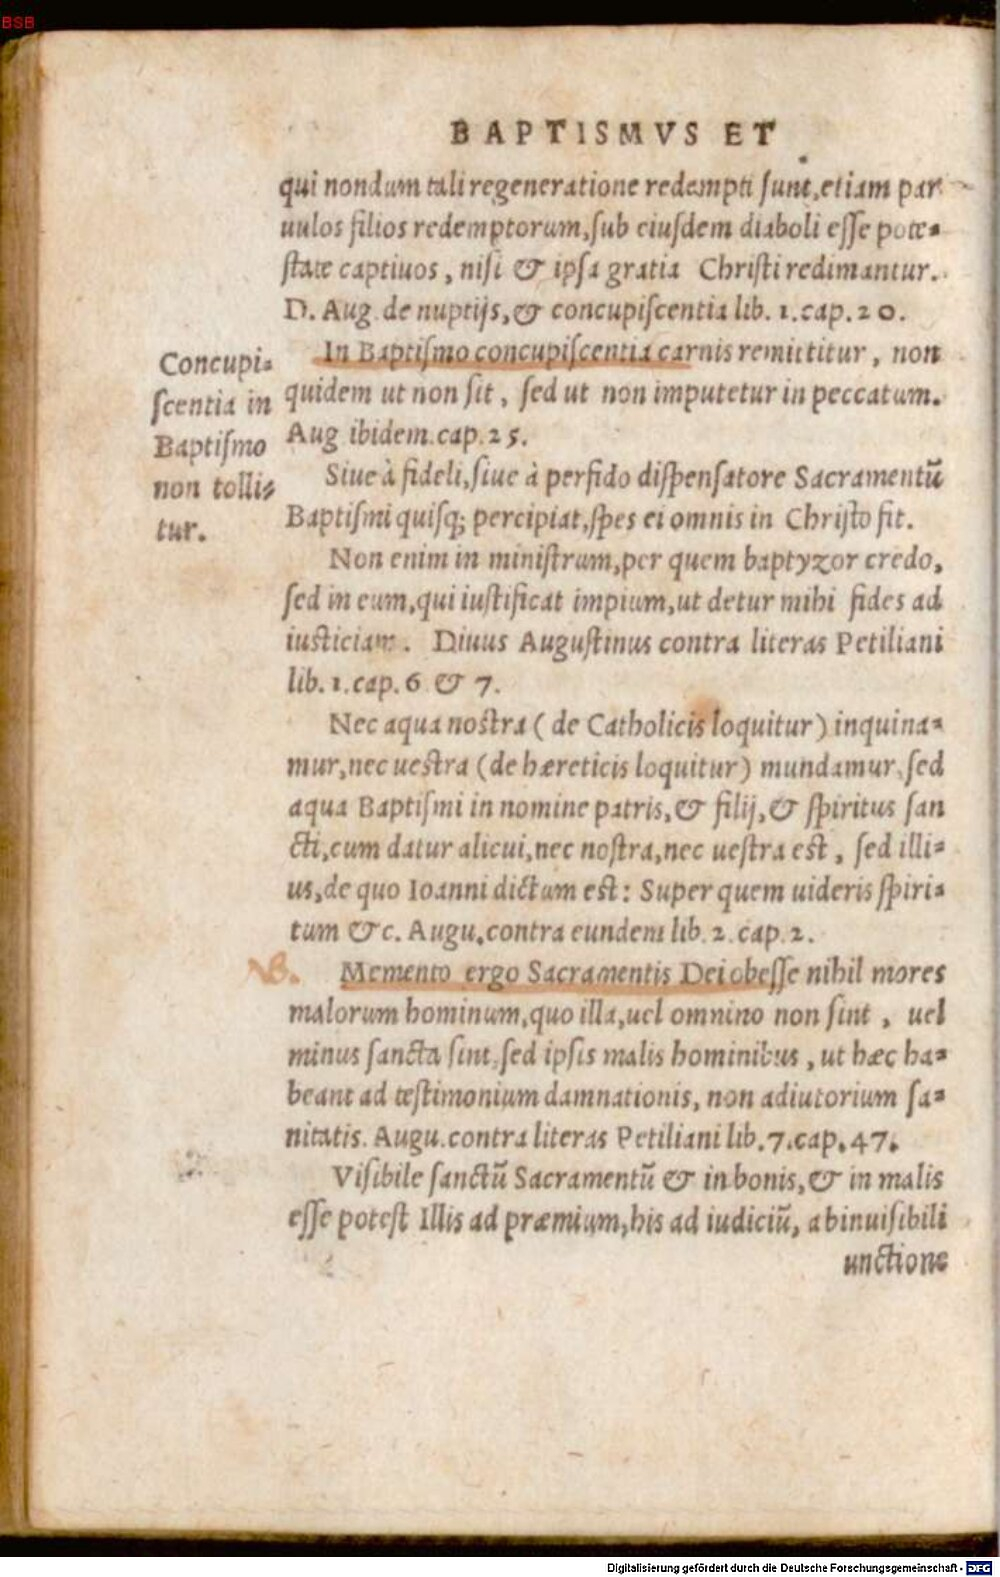 BSB
BAPTISMVS ET
qui nondum tali regeneratione redempti sunt, etiam par
uulos filios redemptorum, sub eiusdem diaboli esse pote-
state captiuos, nisi & ipsa gratia Christi redimantur.
D. Aug. de nuptijs, & concupiscentia lib. 1. cap. 20.
In Baptismo concupiscentia carnis remittitur, non
quidem ut non sit, sed ut non imputetur in peccatum.
Aug ibidem. cap. 25.
Concupi-
scentia in
Baptismo
non tolli-
tur.
Siue à fideli, siue à perfido dispensatore Sacramentũ
Baptismi quisq; percipiat, spes ei omnis in Christo fit.
Non enim in ministrum, per quem baptyzor credo,
sed in eum, qui iustificat impium, ut detur mihi fides ad
iusticiam. Diuus Augustinus contra literas Petiliani
lib. 1. cap. 6 & 7.
Nec aqua nostra (de Catholicis loquitur) inquina-
mur, nec uestra (de hæreticis loquitur) mundamur, sed
aqua Baptismi in nomine patris, & filij, & spiritus san
cti, cum datur alicui, nec nostra, nec uestra est, sed illi-
us, de quo Ioanni dictum est: Super quem uideris spiri-
tum &c. Augu. contra eundem lib. 2. cap. 2.
NB. Memento ergo Sacramentis Dei obesse nihil mores
malorum hominum, quo illa, uel omnino non sint, uel
minus sancta sint, sed ipsis malis hominibus, ut hæc ha-
beant ad testimonium damnationis, non adiutorium sa-
nitatis. Augu. contra literas Petiliani lib. 7. cap. 47.
Visibile sanctũ Sacramentũ & in bonis, & in malis
esse potest Illis ad præmium, his ad iudiciũ, ab inuisibili
unctione
Digitalisierung gefördert durch die Deutsche Forschungsgemeinschaft - DFG